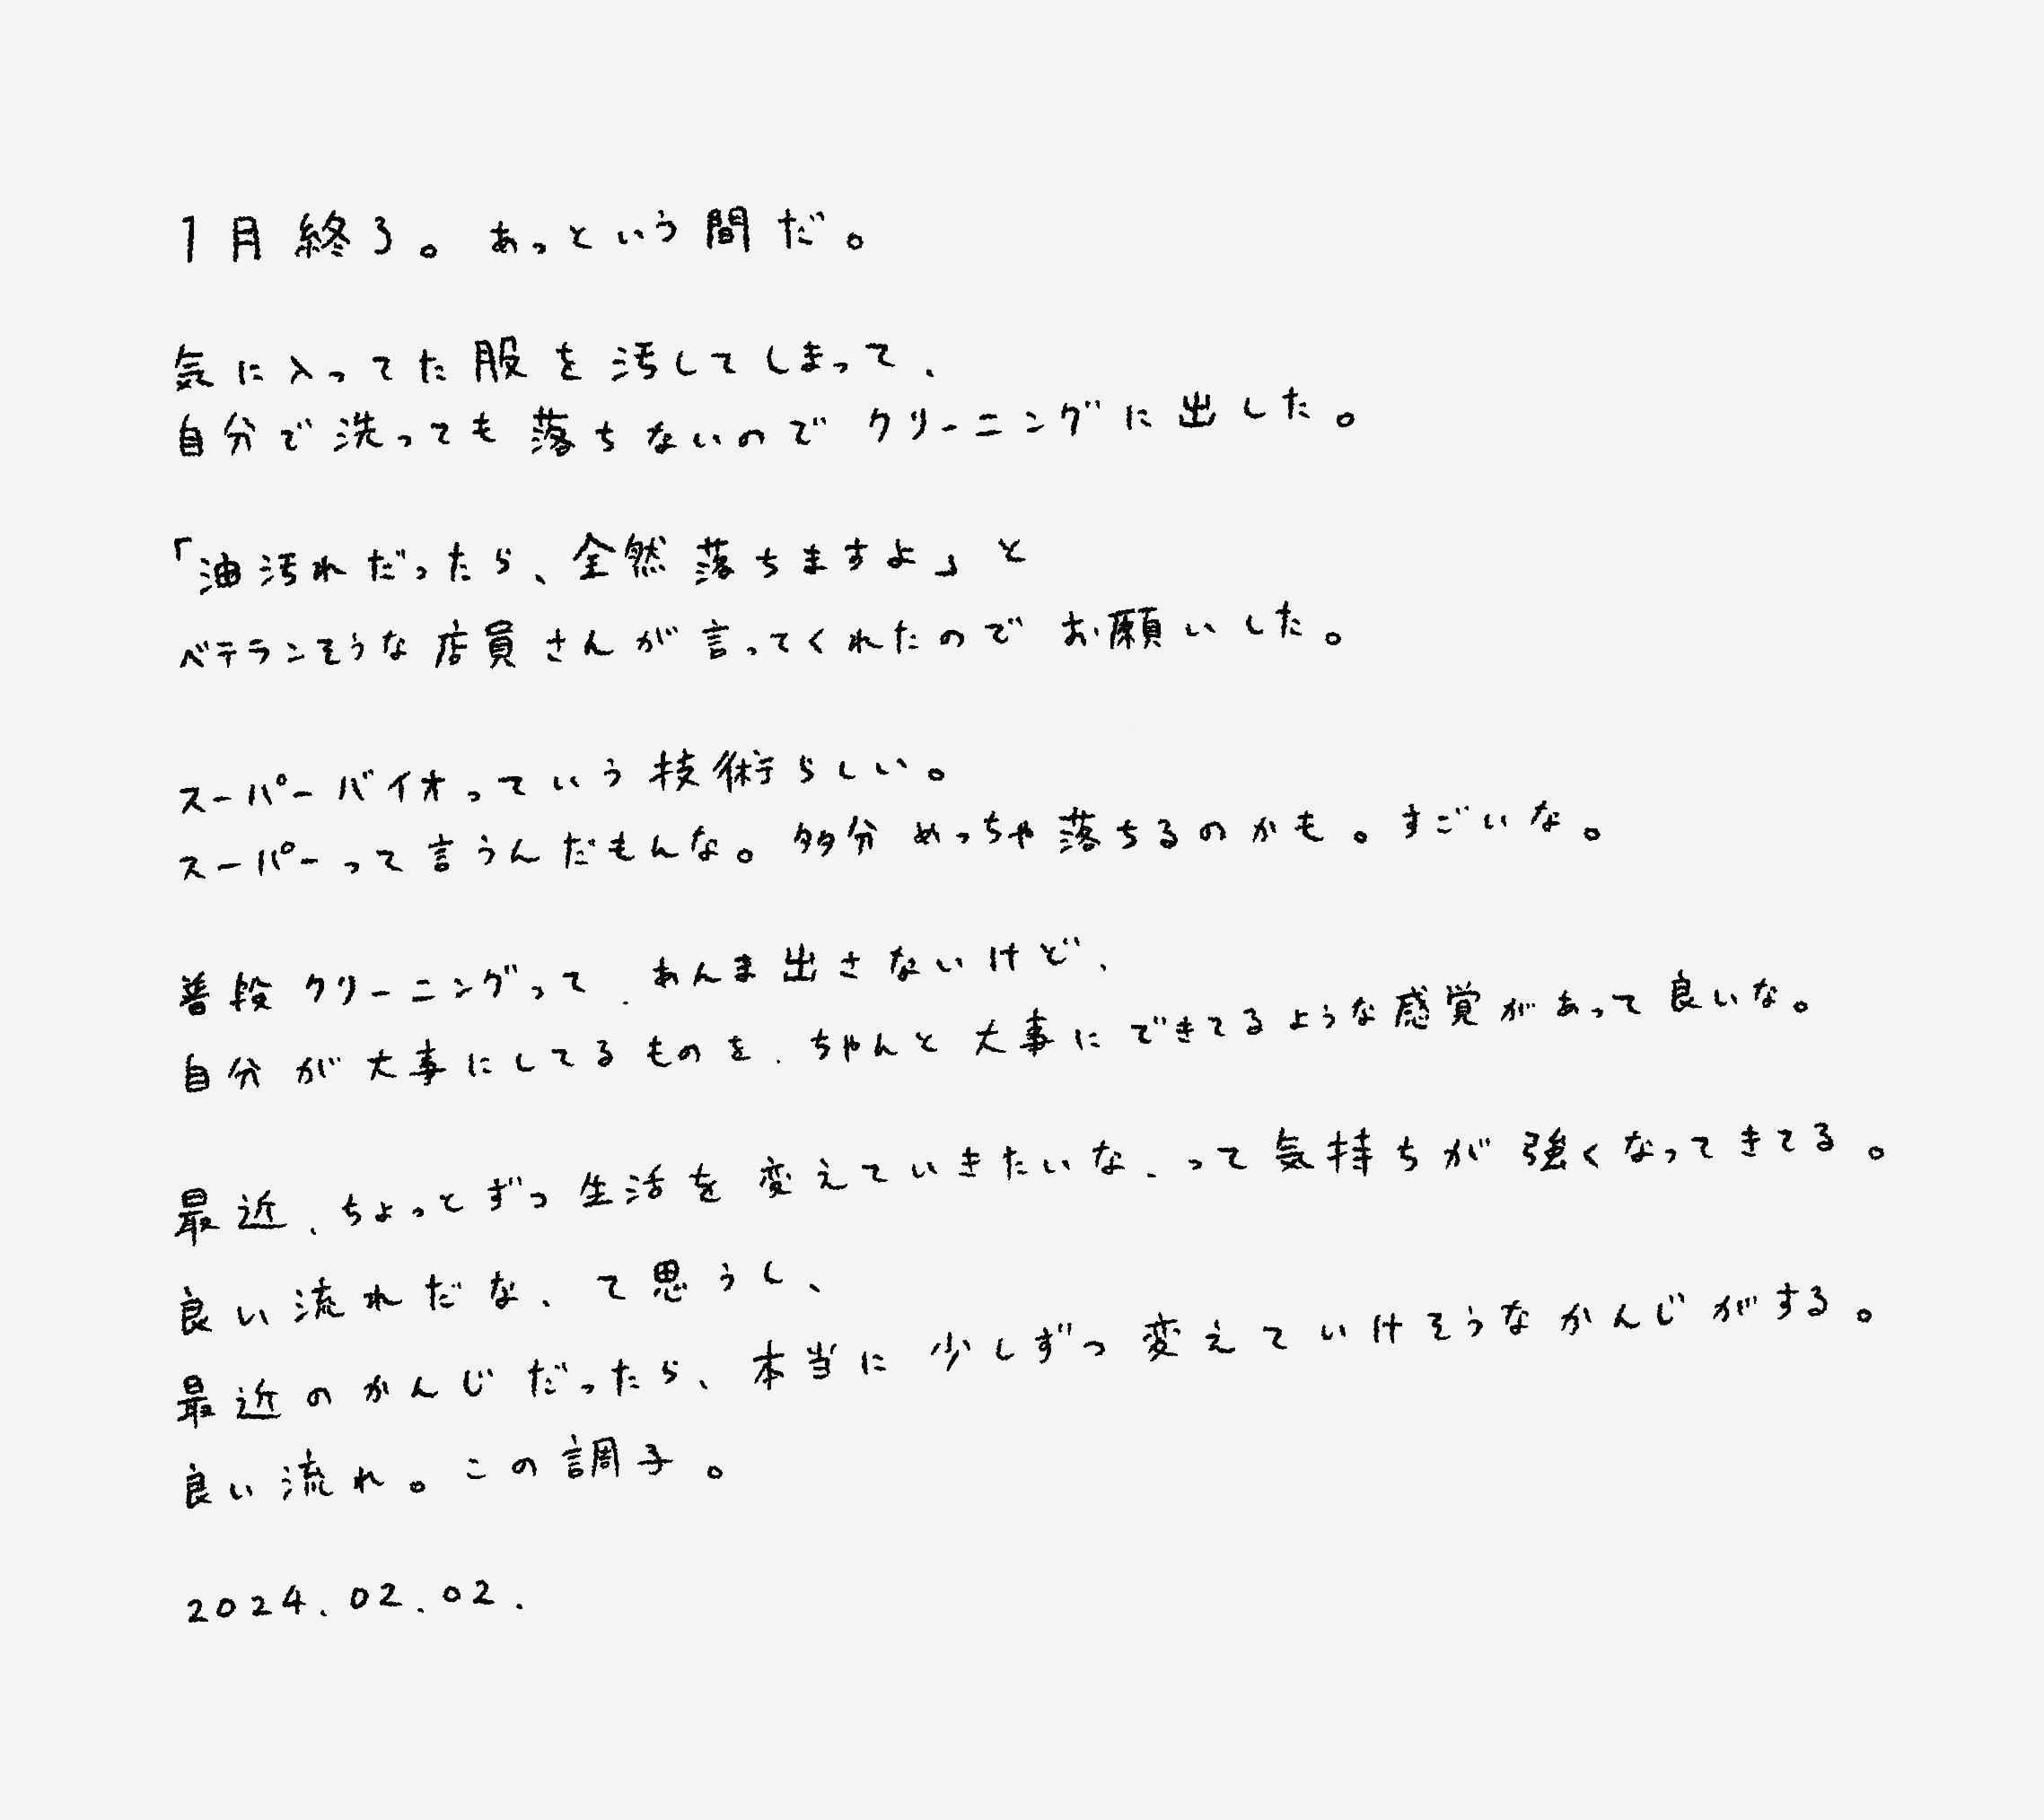 1月終了。あっという間だ。
気に入ってた服を汚してしまって、
自分で洗っても落ちないのでクリーニングに出した。
「油汚れだったら、全然落ちますよ」と
ベテランそうな店員さんが言ってくれたのでお願いした。
スーパーバイオっていう技術らしい。
スーパーって言うんだもんな。多分めっちゃ落ちるのかも。すごいな。
普段クリーニングって、あんま出さないけど、
自分が大事にしてるものを、ちゃんと大事にできてるような感覚があって良いな。
最近、ちょっとずつ生活を変えていきたいな、って気持ちが強くなってきてる。
良い流れだな、て思うし、
最近のかんじだったら、本当に少しずつ変えていけそうなかんじがする。
良い流れ。この調子。
2024.02.02.